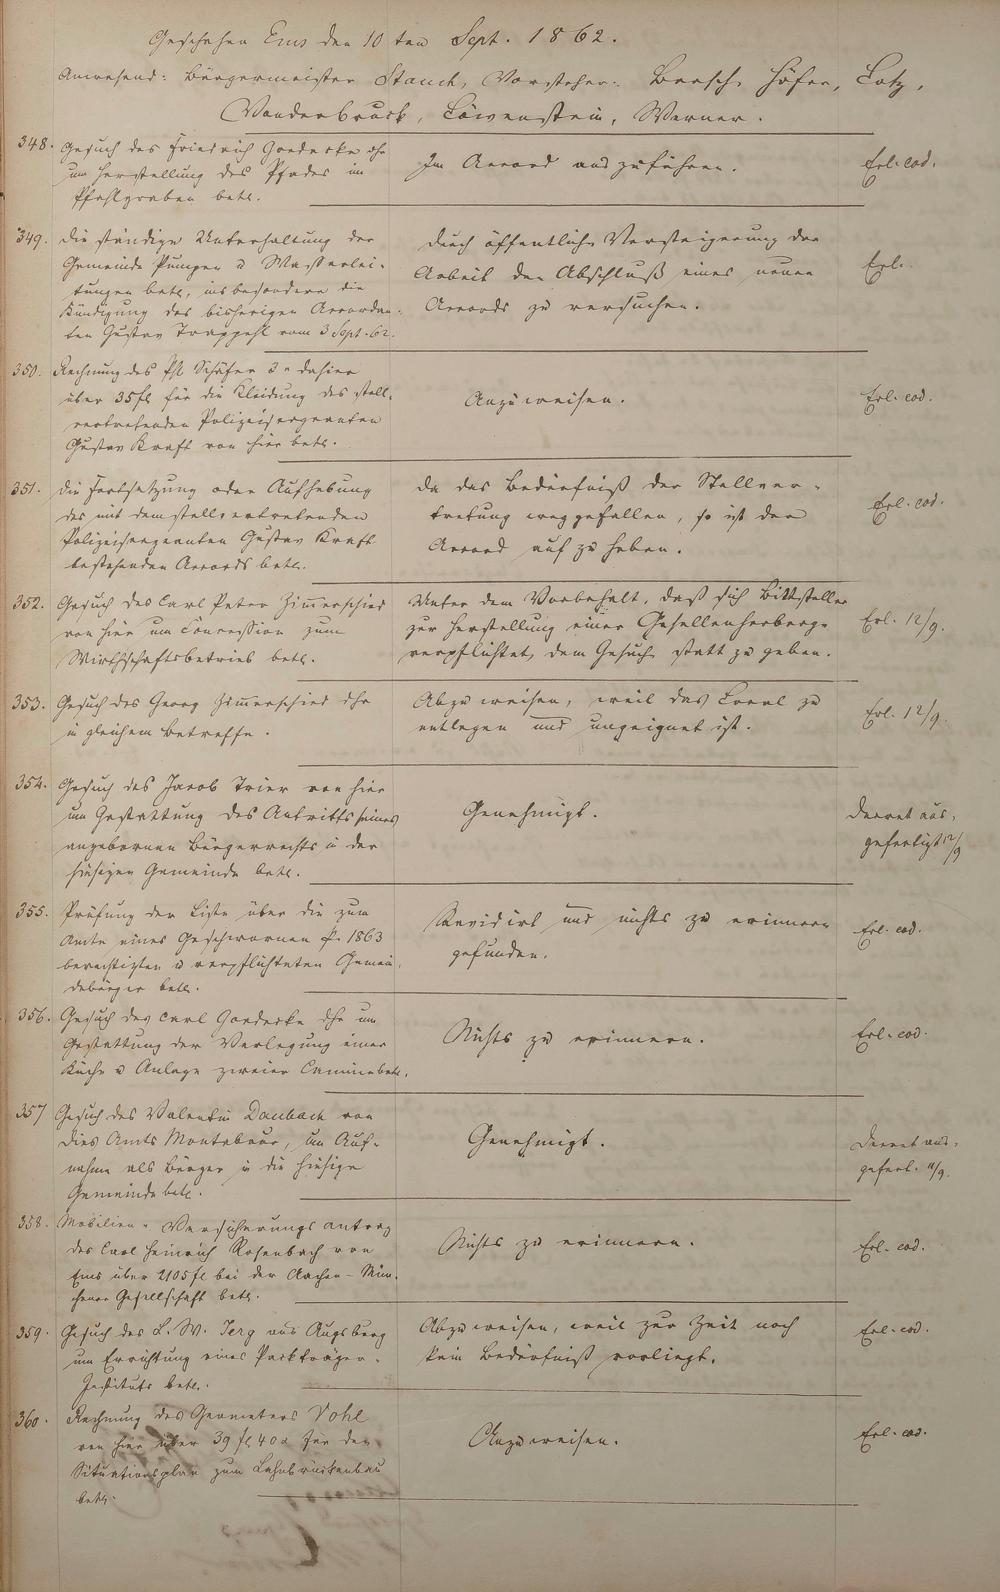 Geschehen Ems den 10ten Sept. 1862.
Anwesend: Bürgermeister Stauch, Vorsteher: Bersch, Höfer, Lotz,
Vonderbruck, Löwenstein, Werner.
348. Gesuch des Friedrich Goedecke dhr
um Herstellung des Pfades im
Pfahlgraben betr.
Im Accord auszuführen.
Erl. eod.
349. Die ständige Unterhaltung der
Gemeinde Pumpen u Wasserlei-
tungen betr., insbesondere die
Kündigung des bisherigen Accordan-
ten Gustav Trappehl vom 3 Sept. 62.
Durch öffentliche Versteigerung der
Arbeit den Abschluß eines neuen
Accords zu versuchen.
Erl.
350. Rechnung des Ph. Schäfer 3r dahier
über 35 fl für die Kleidung des stell-
vertretenden Polizeisergeanten
Gustav Kraft von hier betr.
Anzuweisen.
Erl. eod.
351. Die Fortsetzung oder Aufhebung
des mit dem stellvertretenden
Polizeisergeanten Gustav Kraft
bestehenden Accords betr.
Da das Bedürfniß der Stellver-
tretung weggefallen, so ist der
Accord auf zu heben.
Erl. eod.
352. Gesuch des Carl Peter Zimerschied
von hier um Concession zum
Wirthschaftsbetrieb betr.
Unter dem Vorbehalt, daß sich Bittsteller
zur Herstellung einer Gesellenherberge
verpflichtet, dem Gesuch statt zu geben.
Erl. 12/9.
353. Gesuch des Georg Zimerschied dhr
in gleichem Betreffe.
Abzuweisen, weil das Local zu
entlegen und ungeignet ist.
Erl. 12/9.
354. Gesuch des Jacob Trier von hier
um Gestattung des Antritts seines
angebornen Bürgerrechts in der
hiesigen Gemeinde betr.
Genehmigt.
Decret aus-
gefertigt 12/9
355. Prüfung der Liste über die zum
Amte eines Geschwornen p. 1863
berechtigten u verpflichteten Gemein-
debürger betr.
Revidirt und nichts zu erinnern
gefunden.
Erl. eod.
356. Gesuch des Carl Goedecke dhr um
Gestattung der Verlegung einer
Küche u Anlage zweier Camine betr.
Nichts zu erinnern.
Erl. eod.
357 Gesuch des Valentin Daubach von
Dies Amts Montabaur, um Auf-
nahme als Bürger in die hiesige
Gemeinde betr.
Genehmigt.
Decret aus-
gefert. 11/9.
358. Mobilien-Versicherungsantrag
des Carl Heinrich Rosenbach von
Ems über 2105 fl bei der Aachen-Mün-
chener Gesellschaft betr.
Nichts zu erinnern.
Erl. eod.
359. Gesuch des L. W. Jerg aus Augsburg
um Errichtung eines Packträger-
Instituts betr.
Abzuweisen, weil zur Zeit noch
kein Bedürfniß vorliegt.
Erl. eod.
360. Rechnung des Geometers Vohl
von hier über 39 fl 40 x für den
Situationsplan zum Lahnbrückenbau
betr.
Anzuweisen.
Erl. eod.